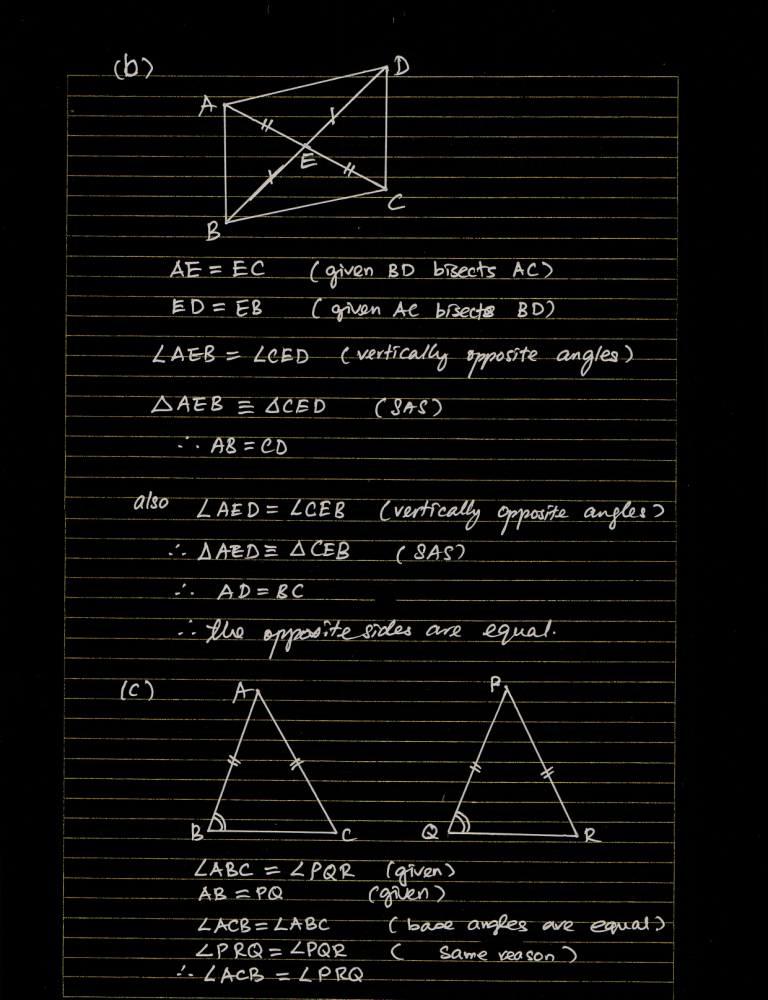 (b)
D
A
E
C
B
AE = EC (given BD bisects AC)
ED = EB (given AC bisects BD)
∠AEB = ∠CED (vertically opposite angles)
△AEB ≡ △CED (SAS)
∴ AB = CD
also ∠AED = ∠CEB (vertically opposite angles)
∴ △AED ≡ △CEB (SAS)
∴ AD = BC
∴ the opposite sides are equal.
(c)
A P
B C Q R
∠ABC = ∠PQR (given)
AB = PQ (given)
∠ACB = ∠ABC (base angles are equal)
∠PRQ = ∠PQR ( same reason )
∴ ∠ACB = ∠PRQ